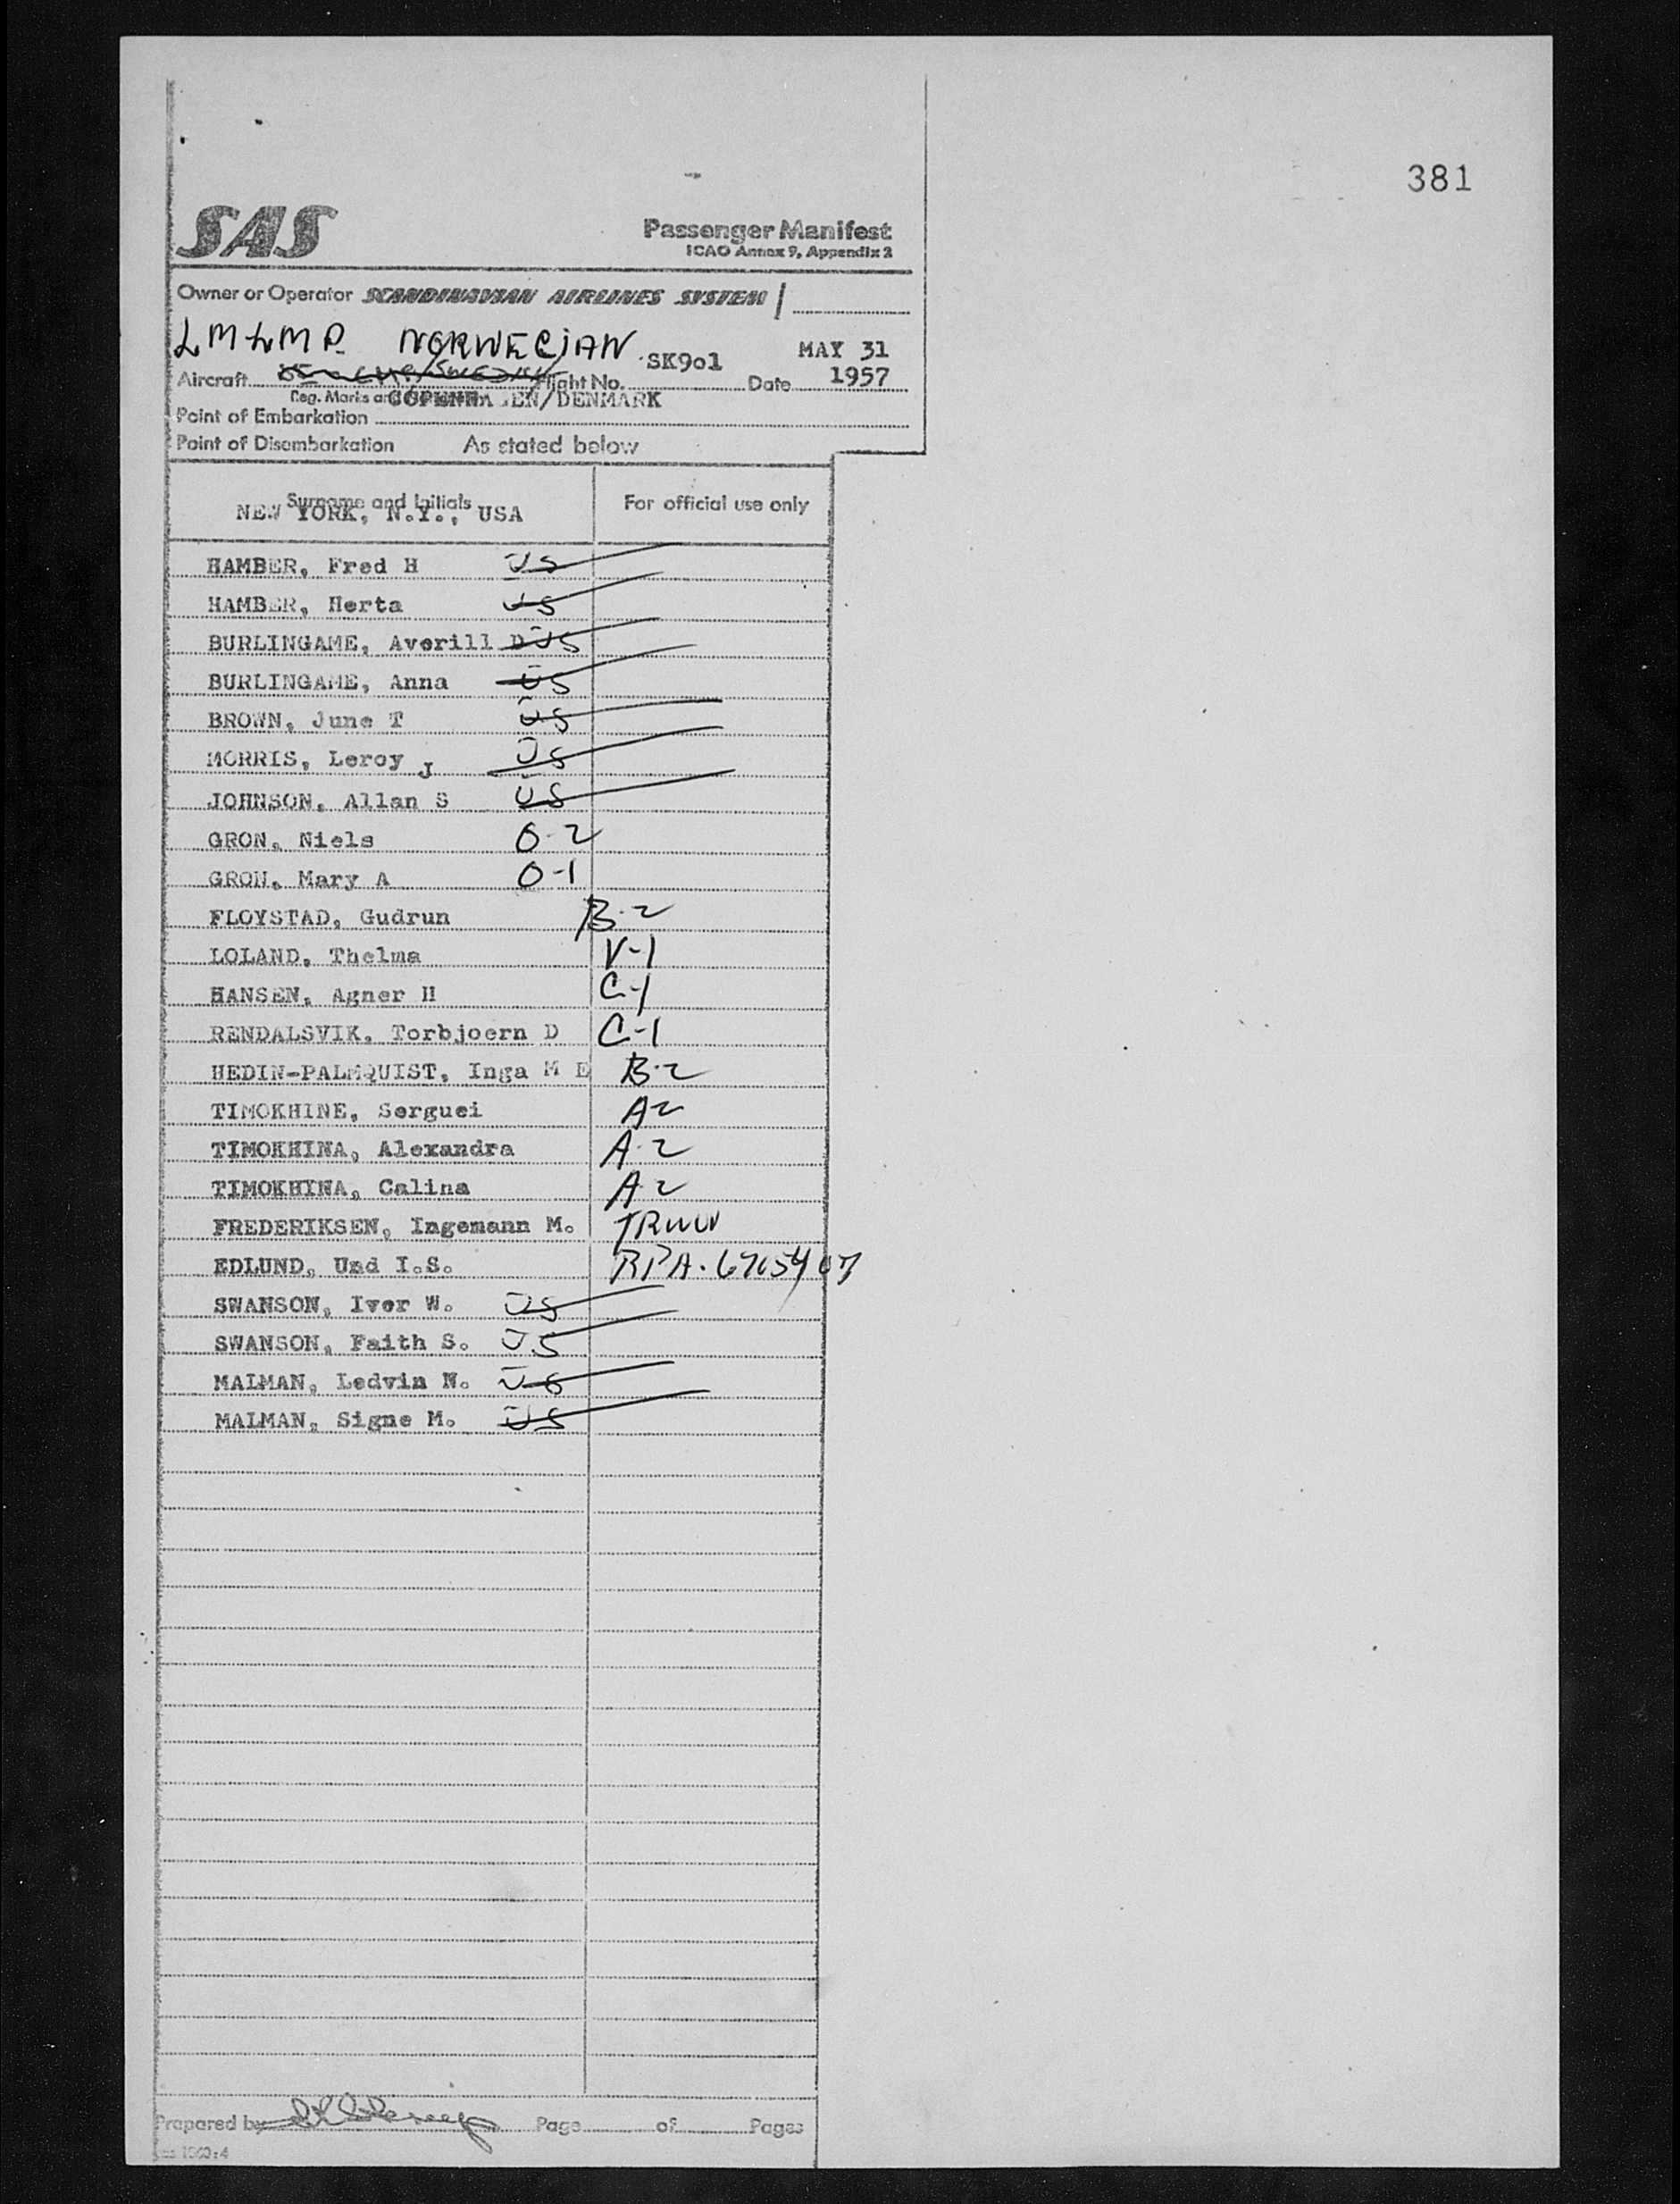 381
SAS
Passenger Manifest
ICAO Annex 9, Appendix 2
Owner or Operator SCANDINAVIAN AIRLINES SYSTEM
NORWEGIAN SK901 MAY 31
Aircraft Flight No. Date 1957
Reg. Marks and
COPENHAGEN/DENMARK
Point of Embarkation
Point of Disembarkation As stated below
Surname and Initials For official use only
NEW YORK, N.Y., USA
HAMBER, Fred H US
HAMBER, Herta US
BURLINGAME, Averill D US
BURLINGAME, Anna US
BROWN, June T US
MORRIS, Leroy J US
JOHNSON, Allan S US
GRON, Niels O-2
GRON, Mary A O-1
FLOYSTAD, Gudrun B-2
LOLAND, Thelma V-1
HANSEN, Agner H C-1
RENDALSVIK, Torbjoern D C-1
HEDIN-PALMQUIST, Inga M E B-2
TIMOKHINE, Serguei A2
TIMOKHINA, Alexandra A-2
TIMOKHINA, Calina A-2
FREDERIKSEN, Ingemann M. TRWV
EDLUND, Und I.S. RPA.
SWANSON, Iver W. US
SWANSON, Faith S. US
MALMAN, Ledvin N. US
MALMAN, Signe M. US
Prepared by Page of Pages